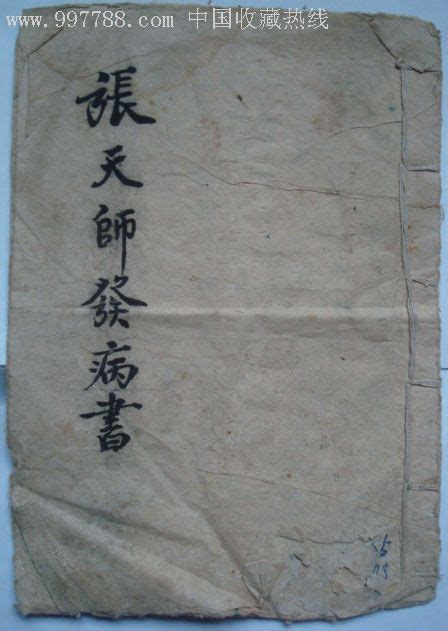 www.997788.com 中国收藏热线
張天師發病書